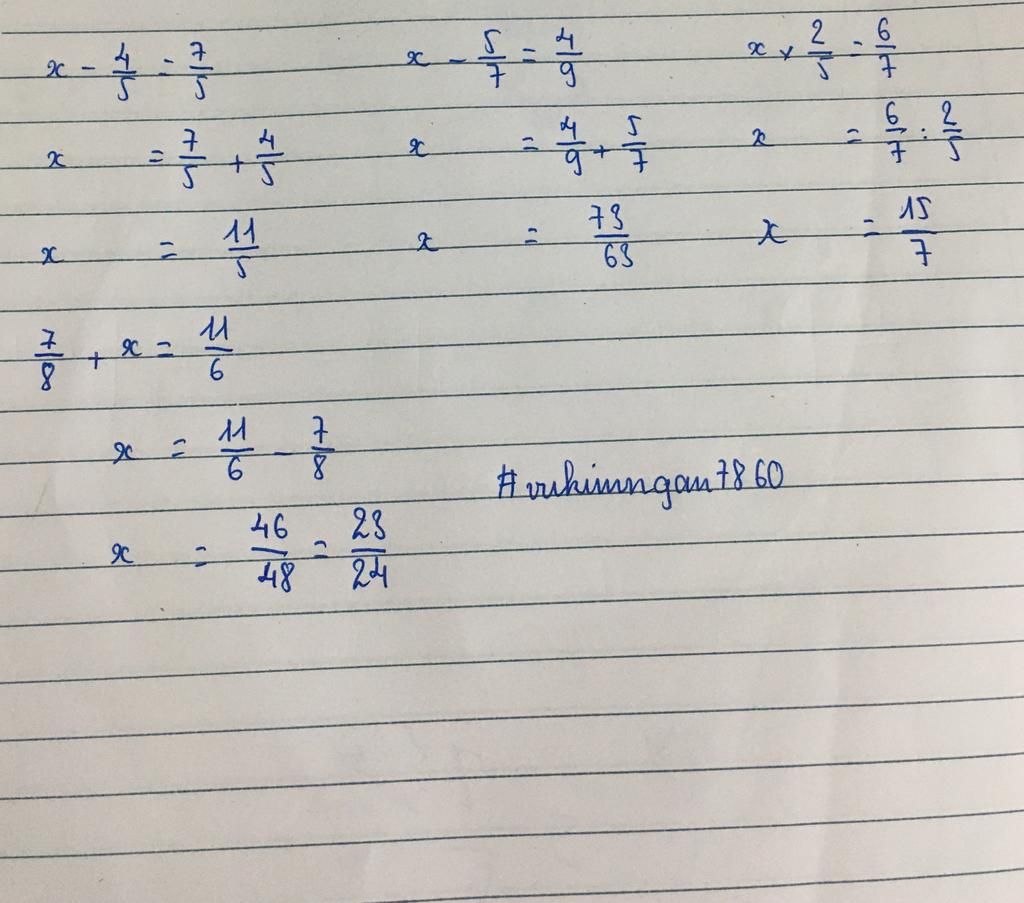 x - 4/5 = 7/5
x = 7/5 + 4/5
x = 11/5
x - 5/7 = 4/9
x = 4/9 + 5/7
x = 73/63
x × 2/5 = 6/7
x = 6/7 : 2/5
x = 15/7
7/8 + x = 11/6
x = 11/6 - 7/8
x = 46/48 = 23/24
#vukimngan7860